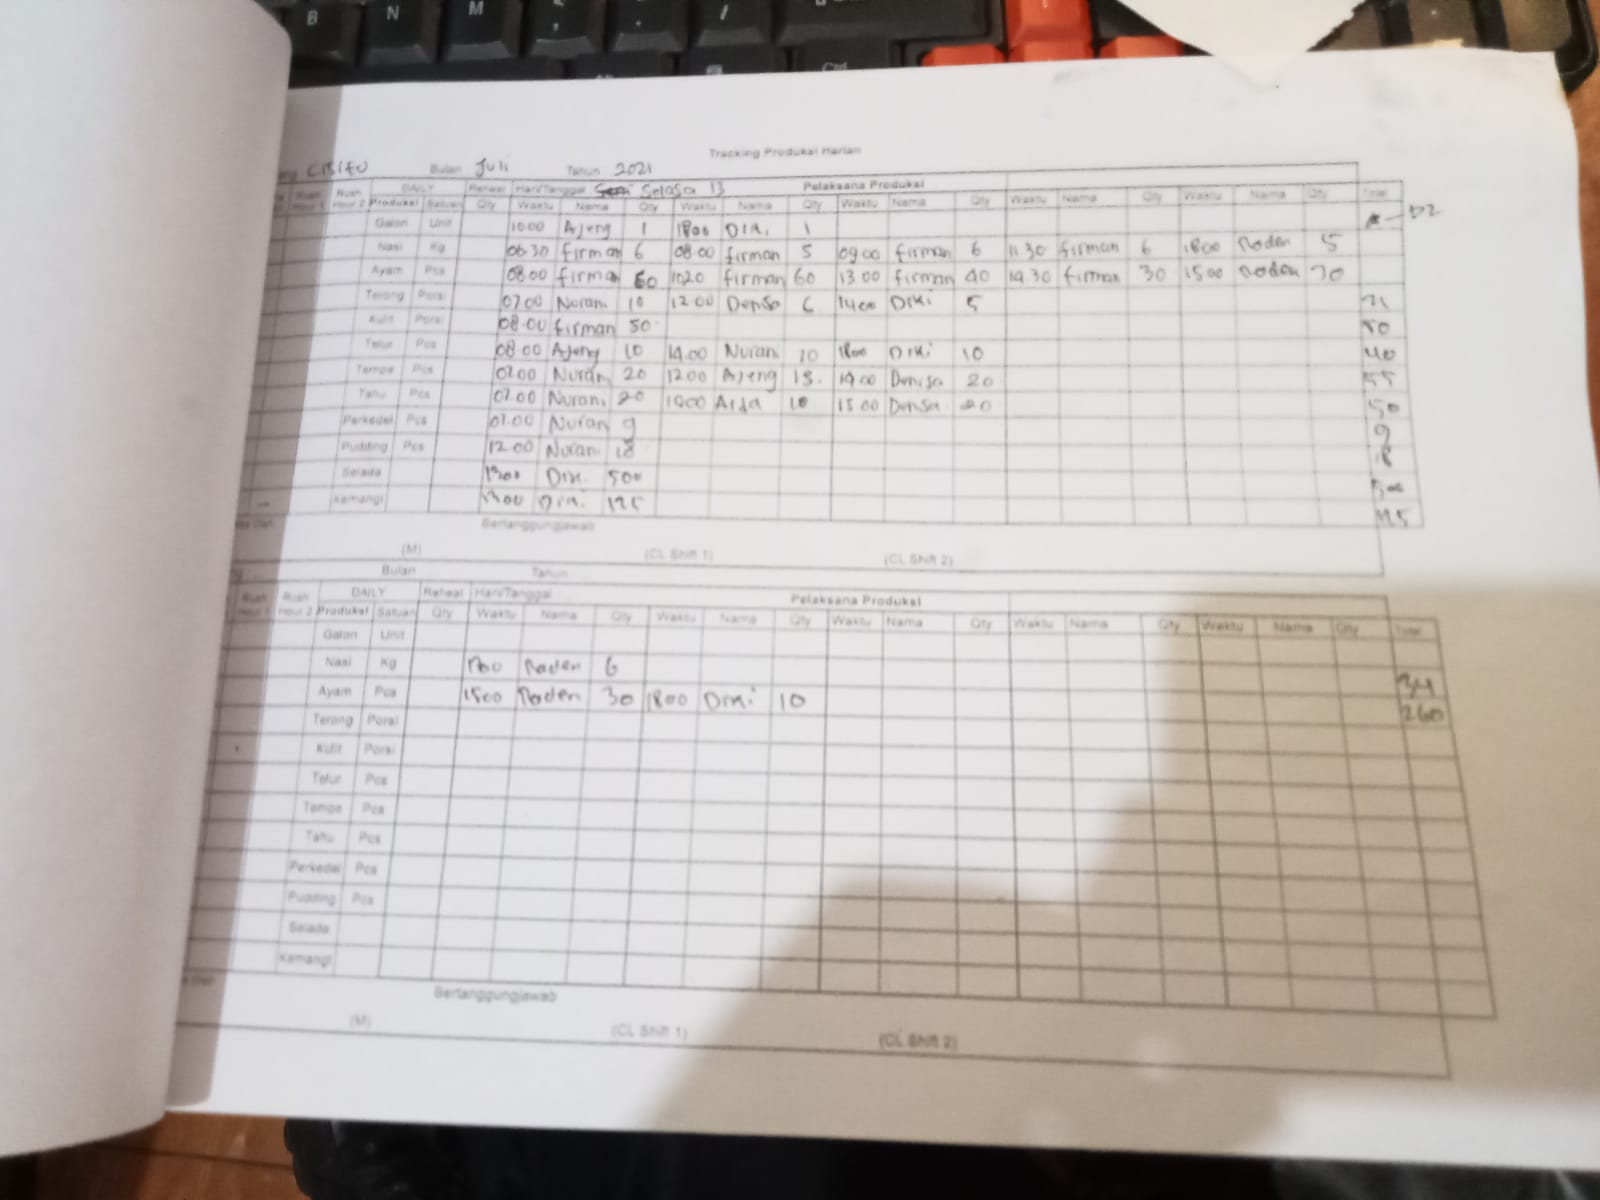 B N M
Tracking Produksi Harian
CISITU Bulan Juli Tahun 2021
Rush Rush DAILY Reheat Hari/Tanggal Selasa 13 Pelaksana Produksi
Hour 1 Hour 2 Produksi Satuan Qty Waktu Nama Qty Waktu Nama Qty Waktu Nama Qty Waktu Nama Qty Waktu Nama Qty Total
Galon Unit 1000 Ajeng 1 1800 Diki 1 2
Nasi Kg 06 30 firman 6 08.00 firman 5 09 00 firman 6 11 30 firman 6 1800 Raden 5
Ayam Pcs 08.00 firman 60 1020 firman 60 13.00 firman 40 14 30 firman 30 1500 Raden 30
Terong Porsi 07.00 Nurani 10 12.00 Denisa 6 1400 Diki 5 21
Kulit Porsi 08.00 firman 50 50
Telur Pcs 08 00 Ajeng 10 14.00 Nurani 10 1800 Diki 10 40
Tempe Pcs 07.00 Nurani 20 1200 Ajeng 15 19 00 Denisa 20 55
Tahu Pcs 07.00 Nurani 20 1000 Arda 10 15 00 Denisa 20 50
Perkedel Pcs 07.00 Nurani 9 9
Pudding Pcs 12.00 Nurani 18 18
Selada 1300 Diki 500 500
Kemangi 1300 Diki 125 125
Bertanggungjawab
(M) (CL Shift 1) (CL Shift 2)
Bulan Tahun
Rush Rush DAILY Reheat Hari/Tanggal Pelaksana Produksi
Hour 1 Hour 2 Produksi Satuan Qty Waktu Nama Qty Waktu Nama Qty Waktu Nama Qty Waktu Nama Qty Waktu Nama Qty Total
Galon Unit
Nasi Kg Raden 6 34
Ayam Pcs 1500 Raden 30 1800 Diki 10 260
Terong Porsi
Kulit Porsi
Telur Pcs
Tempe Pcs
Tahu Pcs
Perkedel Pcs
Pudding Pcs
Selada
Kemangi
Bertanggungjawab
(M) (CL Shift 1) (CL Shift 2)